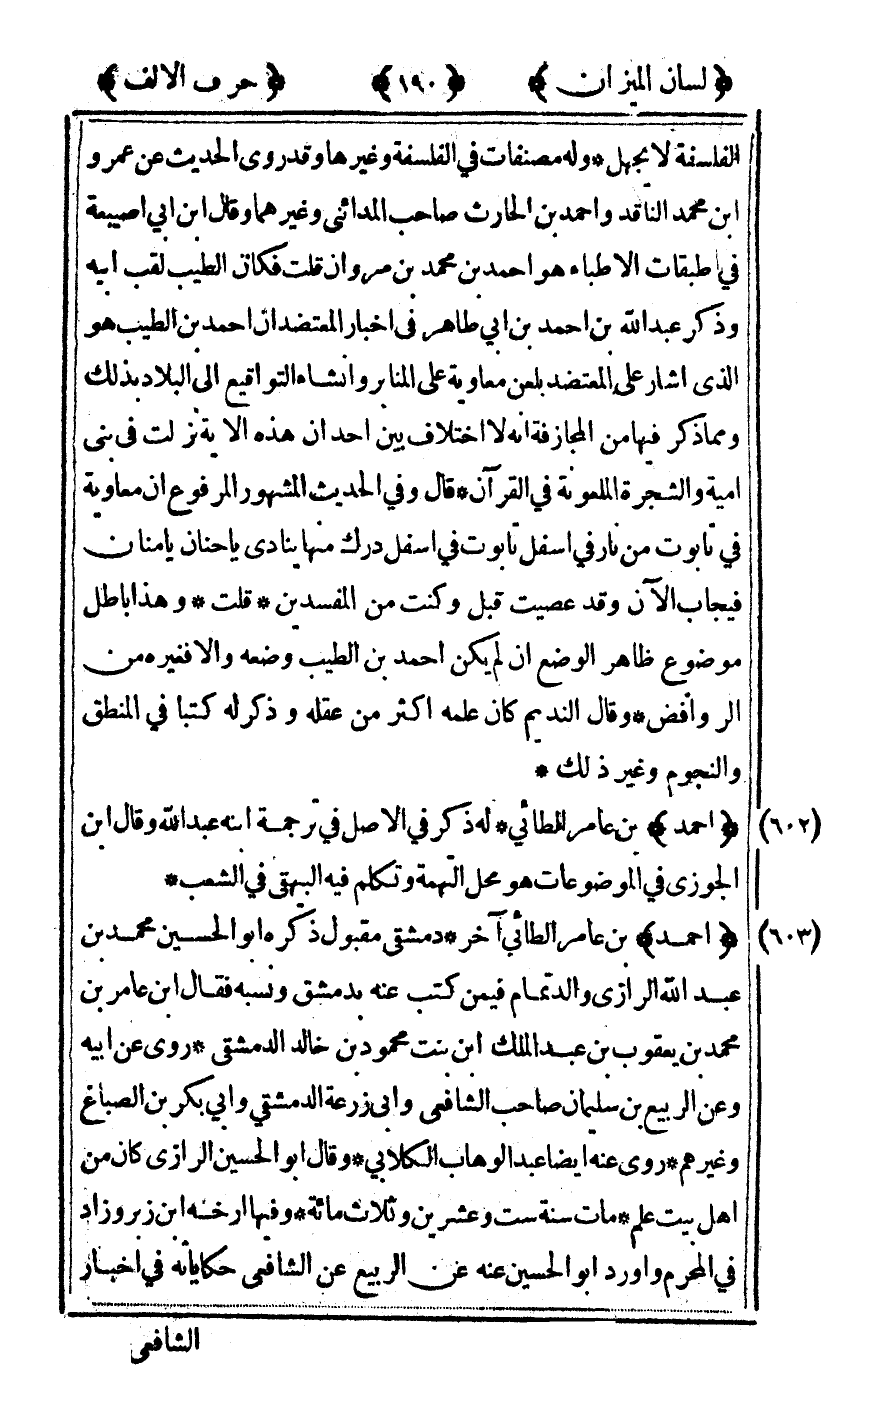 ﴿ لسان الميزان ﴾ ﴿ ١٩٠ ﴾ ﴿ حرف الالف ﴾
الفلسفة لا يجهل * وله مصنفات في الفلسفة وغيرها وقد روى الحديث عن عمرو
ابن محمد الناقد واحمد بن الحارث صاحب المدائنى وغيرهما وقال ابن ابي اصيبعة
في طبقات الاطباء هو احمد بن محمد بن مروان قلت فكان الطيب لقب ابيه
وذكر عبد الله بن احمد بن ابي طاهر فى اخبار المعتضد ان احمد بن الطيب هو
الذى اشار على المعتضد بلعن معاوية على المنابر وانشاء التواقيع الى البلاد بذلك
ومما ذكر فيها من المجازفة انه لا اختلاف بين احد ان هذه الاية نزلت فى بنى
امية والشجرة الملعونة في القرآن * قال وفي الحديث المشهور المرفوع ان معاوية
في تابوت من نار في اسفل تابوت في اسفل درك منها ينادى ياحنان يامنان
فيجاب الآن وقد عصيت قبل وكنت من المفسدين * قلت * وهذا باطل
موضوع ظاهر الوضع ان لم يكن احمد بن الطيب وضعه والا فغيره من
الروافض * وقال النديم كان علمه اكثر من عقله وذكر له كتبا في المنطق
والنجوم وغير ذلك *
(٦٠٢) ﴿ احمد ﴾ بن عامر الطائي * له ذكر في الاصل في ترجمة ابنه عبد الله وقال ابن
الجوزى في الموضوعات هو محل التهمة وتكلم فيه البيهقى في الشعب *
(٦٠٣) ﴿ احمد ﴾ بن عامر الطائي آخر * دمشقى مقبول ذكره ابو الحسين محمد بن
عبد الله الرازى والد تمام فيمن كتب عنه بدمشق ونسبه فقال ابن عامر بن
محمد بن يعقوب بن عبد الملك ابن بنت محمود بن خالد الدمشقى * روى عن ابيه
وعن الربيع بن سليمان صاحب الشافعى وابى زرعة الدمشقي وابي بكر بن الصباغ
وغيرهم * روى عنه ايضا عبد الوهاب الكلابي * وقال ابو الحسين الرازى كان من
اهل بيت علم * مات سنة ست وعشرين وثلاث مائة * وفيها ارخه ابن زبر وزاد
في المحرم واورد ابو الحسين عنه عن الربيع عن الشافعى حكاياته في اخبار
الشافعى